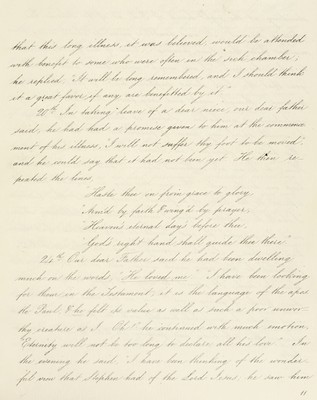 that this long illness, it was believed, would be attended
with benefit to some who were often in the "sick chamber",
he replied, "It will be long remembered, and I should think
it a great favor, if any are benefitted by it."
20th. In taking leave of a dear niece, our dear father
said, he had had a promise given to him at the commence
ment of his illness, I will not suffer thy foot to be moved",
and he could say that it had not been yet. He then re-
peated the lines,
"Haste thee on from grace to glory
Arm'd by faith & wing'd by prayer,
Heaven's eternal day's before thee,
God's right hand shall guide thee there."
24th. Our dear Father said he had been dwelling
much on the words "He loved me" "I have been looking
for them in the Testament, it is the language of the apos
tle Paul, & he felt its value as well as such a poor unwor-
thy creature as I. Oh!" he continued with much emotion,
Eternity will not be too long to declare all his love" In
the evening he said, "I have been thinking of the wonder-
ful view that Stephen had of the Lord Jesus, he saw him
11